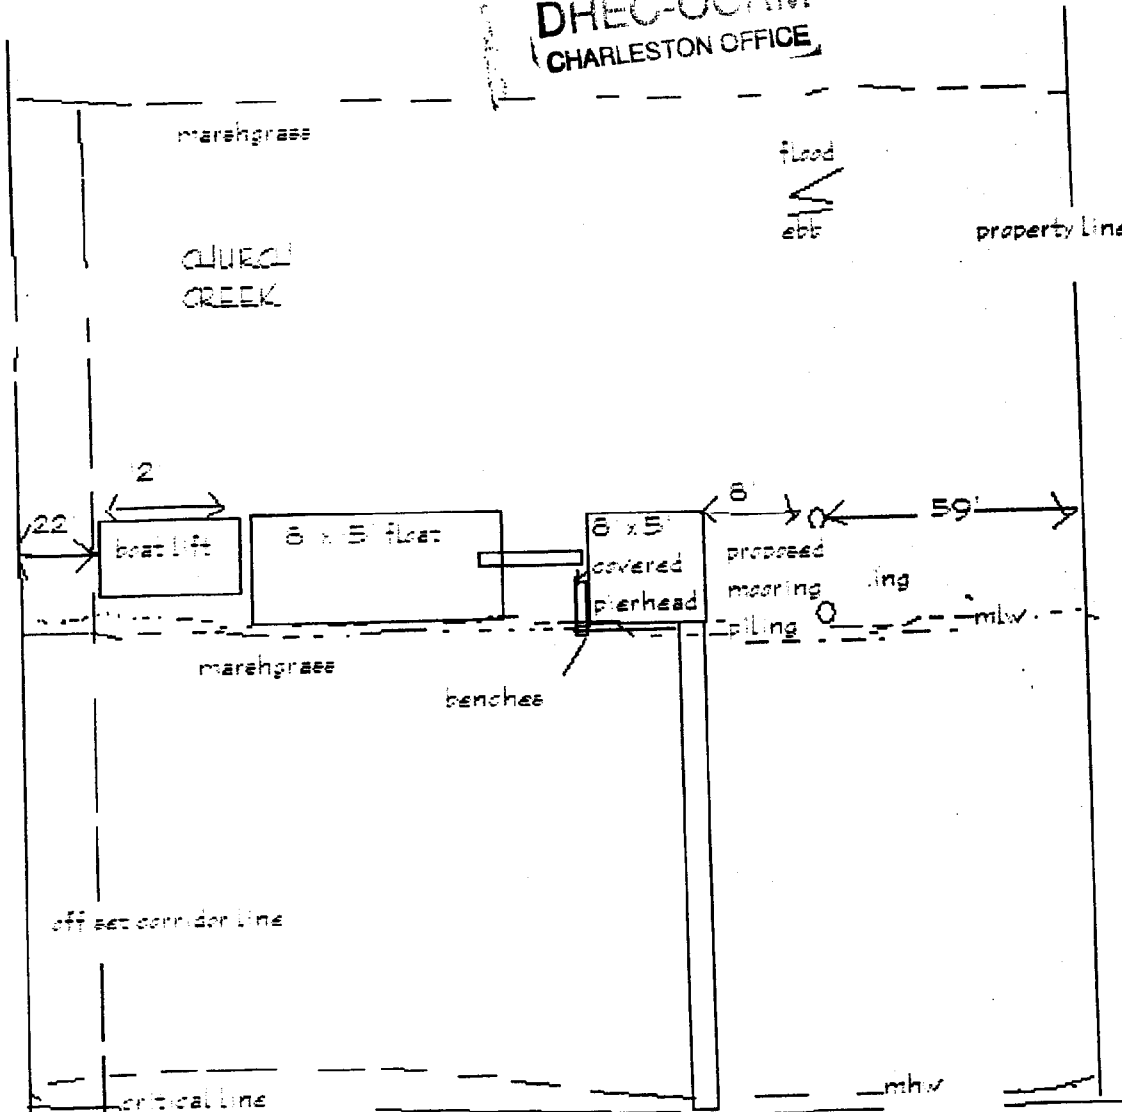 DHEC-OCRM
CHARLESTON OFFICE
marshgrass
flood
ebb
property line
CHURCH
CREEK
2'
22'
boat lift
8' x 5' float
8' x 5'
covered
pierhead
8'
59'
proposed
mooring
piling
ing
mlw
marshgrass
benches
offset corridor line
critical line
mhw